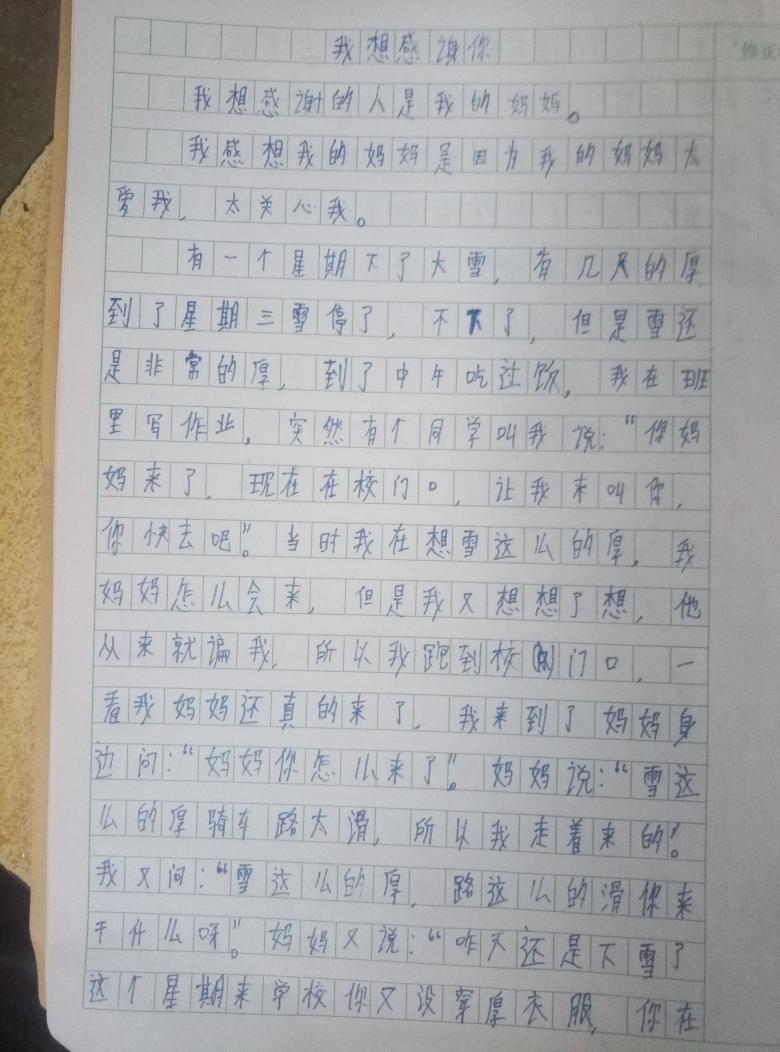 我想感谢你
修正
我想感谢的人是我的妈妈。
我感想我的妈妈是因为我的妈妈太
爱我，太关心我。
有一个星期下了大雪，有几天的厚
到了星期三雪停了，不下了，但是雪还
是非常的厚，到了中午吃过饭，我在班
里写作业，突然有个同学叫我说：“你妈
妈来了，现在在校门口，让我来叫你，
你快去吧”。当时我在想雪这么的厚，我
妈妈怎么会来，但是我又想想了想，他
从来就骗我，所以我跑到校门口，一
看我妈妈还真的来了，我来到了妈妈身
边问：“妈妈你怎么来了”。妈妈说：“雪这
么的厚骑车路太滑，所以我走着来的”。
我又问：“雪这么的厚，路这么的滑你来
干什么呀”。妈妈又说：“昨天还是下雪了
这个星期来学校你又没穿厚衣服，你在